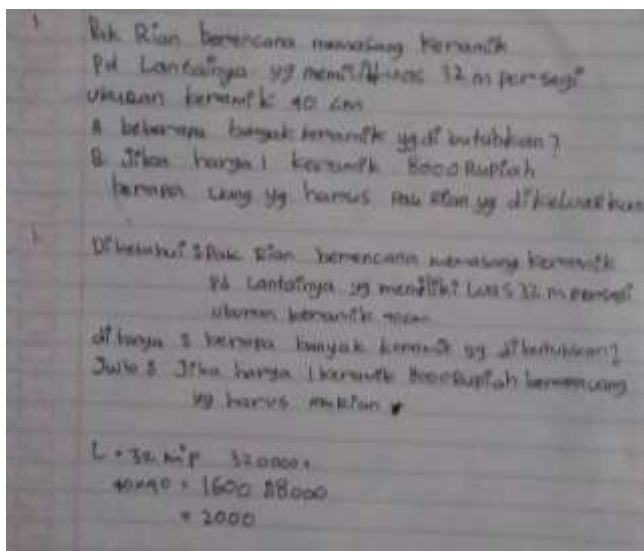 1. Pak Rian berencana memasang keramik
Pd Lantainya yg memiliki Luas 32 m persegi
ukuran keramik 40 cm
A beberapa banyak keramik yg di butuhkan?
B Jika harga 1 keramik 8000 Rupiah
berapa uang yg harus Pak Rian yg dikeluarkan
1. Diketahui : Pak Rian berencana memasang keramik
Pd Lantainya yg memiliki Luas 32 m persegi
ukuran keramik 40cm
ditanya : berapa banyak keramik yg dibutuhkan?
Jwb : Jika harga 1 keramik 8000 Rupiah
yg harus Rian
L = 32 m P 320000
40x40 = 1600 : 88000
= 2000